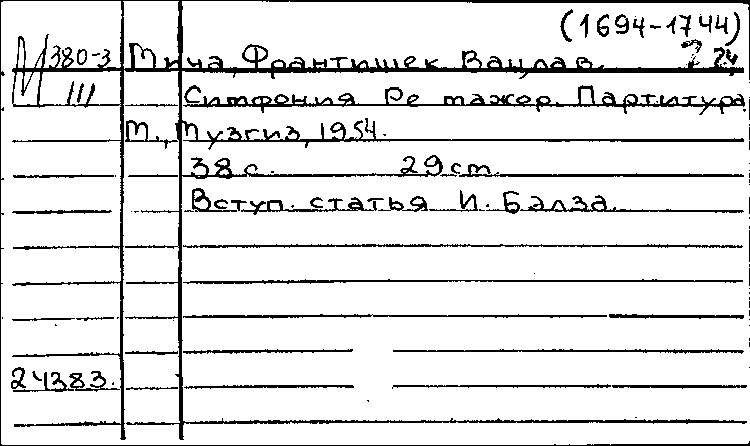 (1694-1744)
М 380-3 Мича, Франтишек Вацлав.
III Симфония Ре мажор. Партитура
М., Музгиз, 1954.
38 с. 29 cm.
Вступ. статья И. Бэлза.
24383.